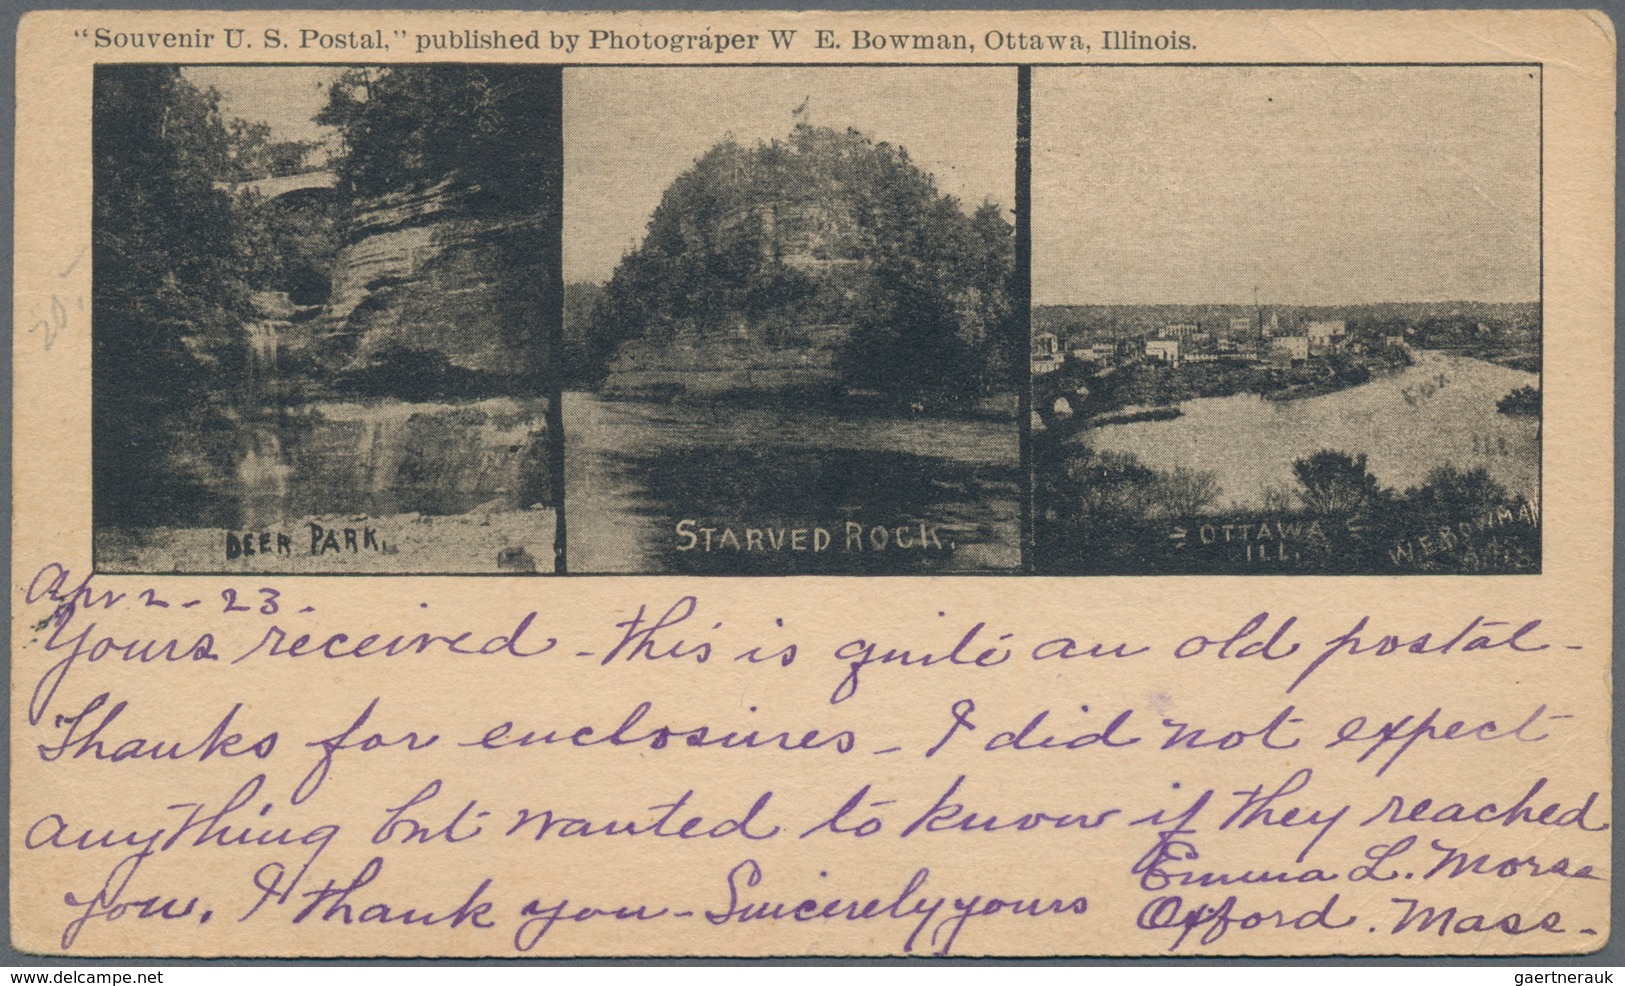 "Souvenir U. S. Postal," published by Photográper W E. Bowman, Ottawa, Illinois.
DEER PARK.
STARVED ROCK.
FOX
ILL
= OTTAWA =
ILL.
W.E. BOWMAN
20,-
Apr 2 - 23.
Yours received - this is quite an old postal -
Thanks for enclosures - I did not expect
anything but wanted to know if they reached
you. I thank you - Sincerely yours
Emma L. Morse
Oxford. Mass -
www.delcampe.net
gaertnerauk